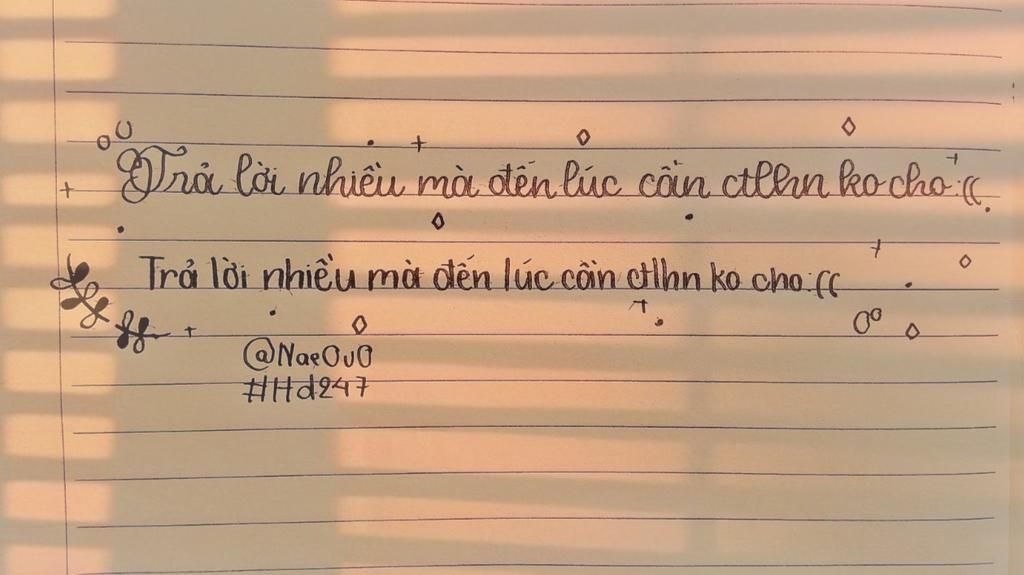 Trả lời nhiều mà đến lúc cần ctlhn ko cho:((
Trả lời nhiều mà đến lúc cần ctlhn ko cho:((
@NaeOvO
#Hd247